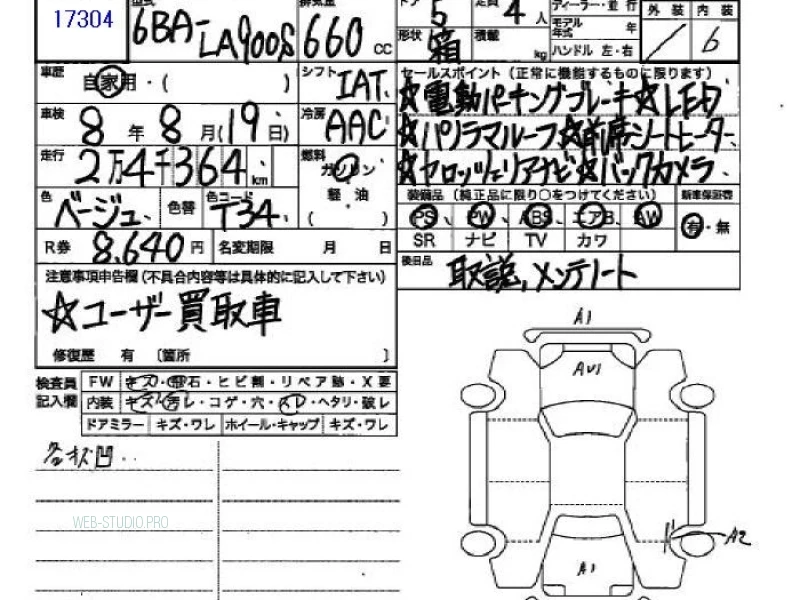 17304
型式
6BA-LA900S
排気量
660 cc
ドア 5
定員 4 人
形状 箱
積載 kg
ディーラー・並行
モデル年式 年
ハンドル 左・右
外装 内装
/ 6
車歴 自家用・( )
シフト IAT
車検 8年8月(19日)
冷房 AAC
走行 2万4千364 km
燃料 ガソリン・軽油 ( )
色 ベージュ
色替
色コード T34
R券 8,640円
名変期限 月 日
セールスポイント(正常に機能するものに限ります)
☆電動パーキングブレーキ☆LED
☆パノラマルーフ☆前席シートヒーター
☆セロッツェリアナビ☆バックカメラ
装備品(純正品に限り○をつけてください)
新車保証書
PS、PW、ABS、エアB、AW
有・無
SR ナビ TV カワ
後日品 取説,メンテノート
注意事項申告欄(不具合内容等は具体的に記入して下さい)
☆ユーザー買取車
修復歴 有 〔箇所 〕
検査員記入欄
FW キズ・飛石・ヒビ割・リペア跡・X要
内装 キズ・汚レ・コゲ・穴・スレ・ヘタリ・破レ
ドアミラー キズ・ワレ ホイール・キャップ キズ・ワレ
各キズ凹..
WEB-STUDIO.PRO
A1
AU1
A2
A1